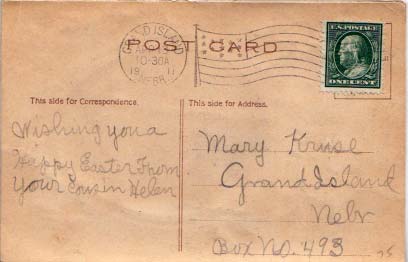 GRAND ISLAND
10-30A
19 11
NEBR.
POST CARD
U.S. POSTAGE
ONE CENT
This side for Correspondence.
This side for Address.
Wishing you a
Happy Easter From
Your Cousin Helen
Mary Kruse
Grand Island
Nebr
Box No. 493